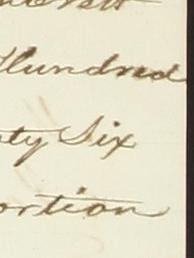 Hundred
ty Six
ortion